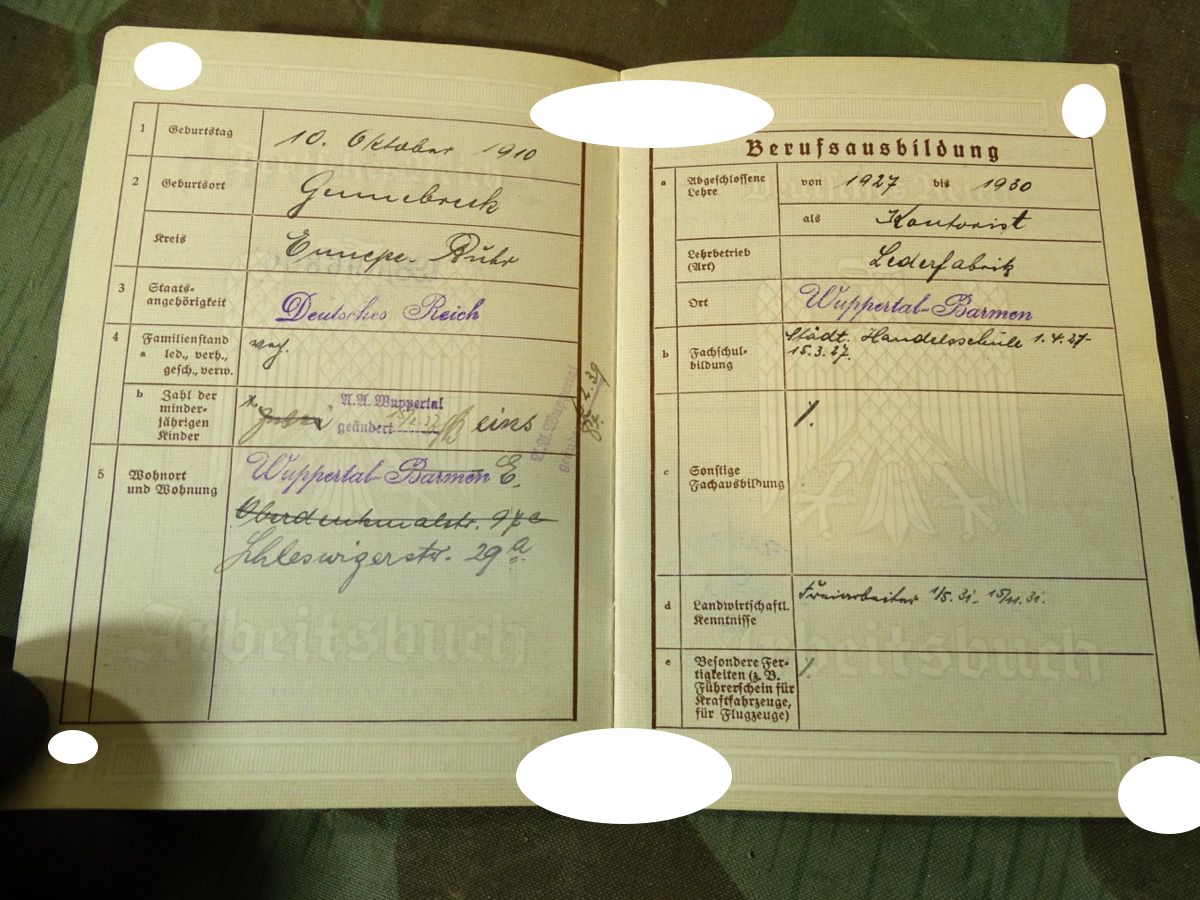 1 Geburtstag 10. Oktober 1910
2 Geburtsort Gennebreck
Kreis Ennepe-Ruhr
3 Staats-
angehörigkeit
Deutsches Reich
4 Familienstand
a led., verh.,
gesch., verw.
b Zahl der
minder-
jährigen
Kinder
A.A. Wuppertal
geändert
eins
5 Wohnort
und Wohnung
Wuppertal-Barmen E.
Oberdenkmalstr. 97a
Schleswigerstr. 29a
Arbeitsbuch
Berufsausbildung
a Abgeschlossene
Lehre
von 1927 bis 1930
als Kontorist
Lehrbetrieb
(Art)
Lederfabrik
Ort Wuppertal-Barmen
b Fachschul-
bildung
Städt. Handelsschule 1.4.27-
15.3.27.
c Sonstige
Fachausbildung
d Landwirtschaftl.
Kenntnisse
1/5.31. 15/11.31.
e Besondere Fer-
tigkeiten (z. B.
Führerschein für
Kraftfahrzeuge,
für Flugzeuge)
Arbeitsbuch